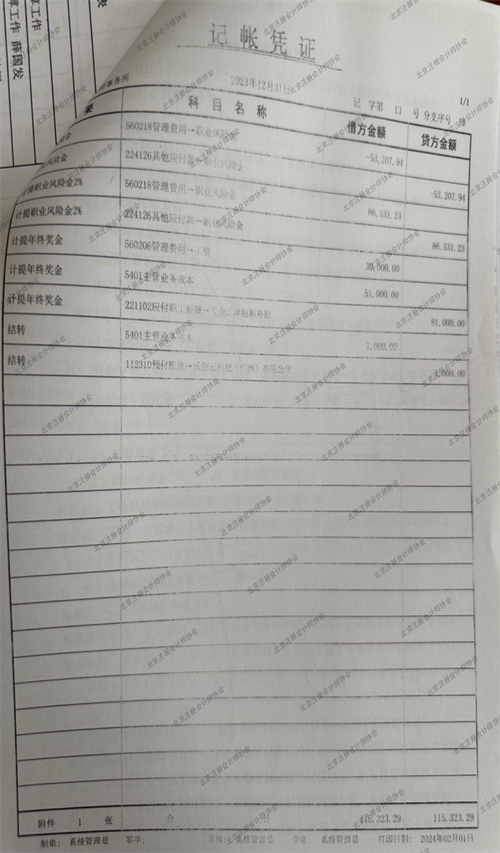 算工作 薛国发
章工作
记帐凭证
事务所
2023年12月31日
1/1
记 字第 13 号 分支序号
要 科目名称 借方金额 贷方金额
金 560218管理费用→职业风险金 -53,207.94
风险金 224126其他应付款→职业风险金 -53,207.94
提职业风险金2% 560218管理费用→职业风险金 86,531.23
计提职业风险金2% 224126其他应付款→职业风险金 86,531.23
计提年终奖金 560206管理费用→工资 30,000.00
计提年终奖金 5401主营业务成本 51,000.00
计提年终奖金 221102应付职工薪酬→奖金、津贴和补贴 81,000.00
结转 5401主营业务成本 1,000.00
结转 112310预付账款→ 云科技（广州）有限公司 1,000.00
附件 1 张 合 115,323.29 115,323.29
制单: 系统管理员 签字: 系统管理员 系统管理员 打印日期: 2024年02月01日
北京注册会计师协会